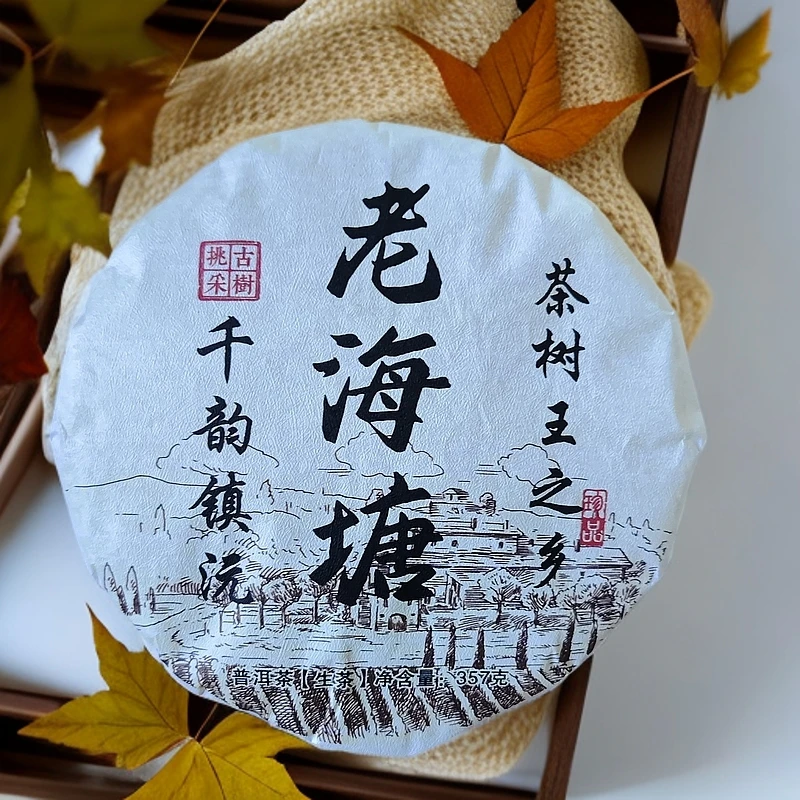 茶树王之乡
珍品
老海塘
古樹挑采
千韵镇沅
普洱茶【生茶】净含量：357克